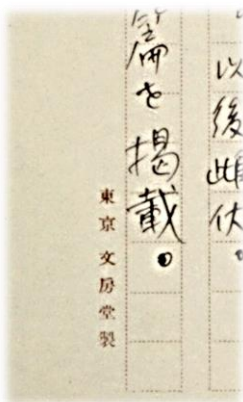 以後雌伏。
篇を掲載。
東京 文房堂製